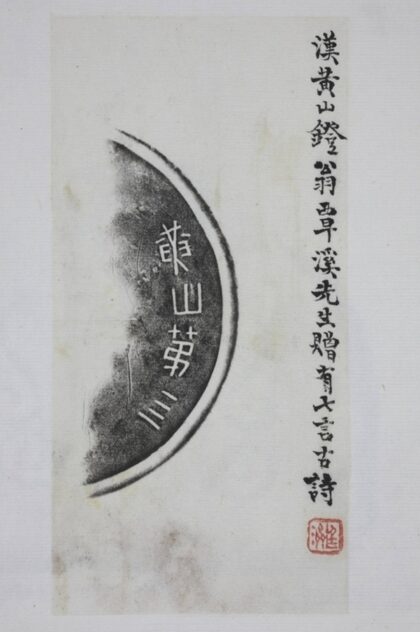 漢黃山鐙翁覃溪先生贈有七言古詩
黃山第三